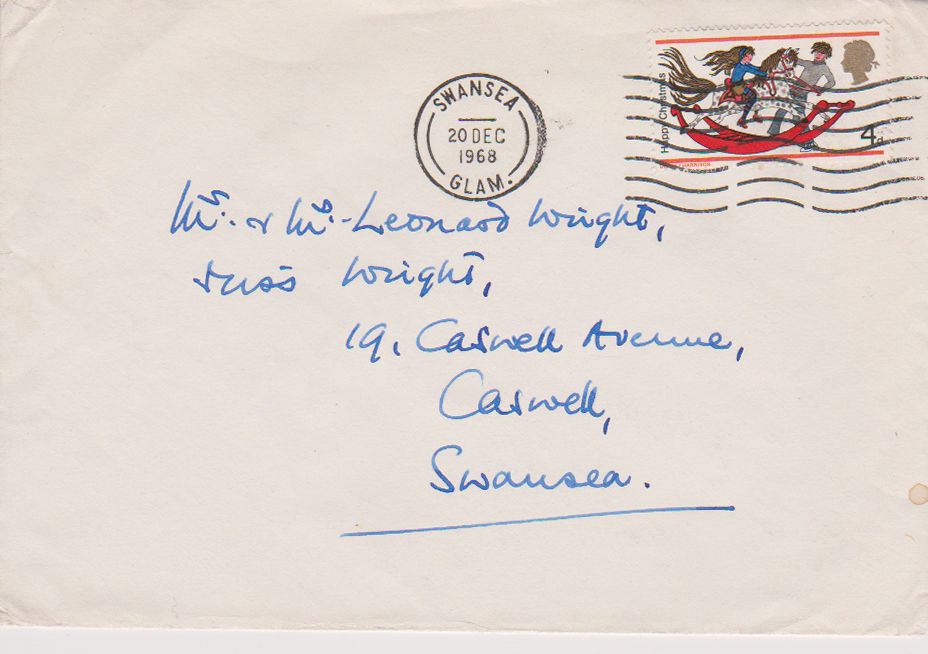 SWANSEA
20 DEC
1968
GLAM.
Happy Christmas
4d
HARRISON
Mr. & Mrs. Leonard Wright,
& Miss Wright,
19, Caswell Avenue,
Caswell,
Swansea.